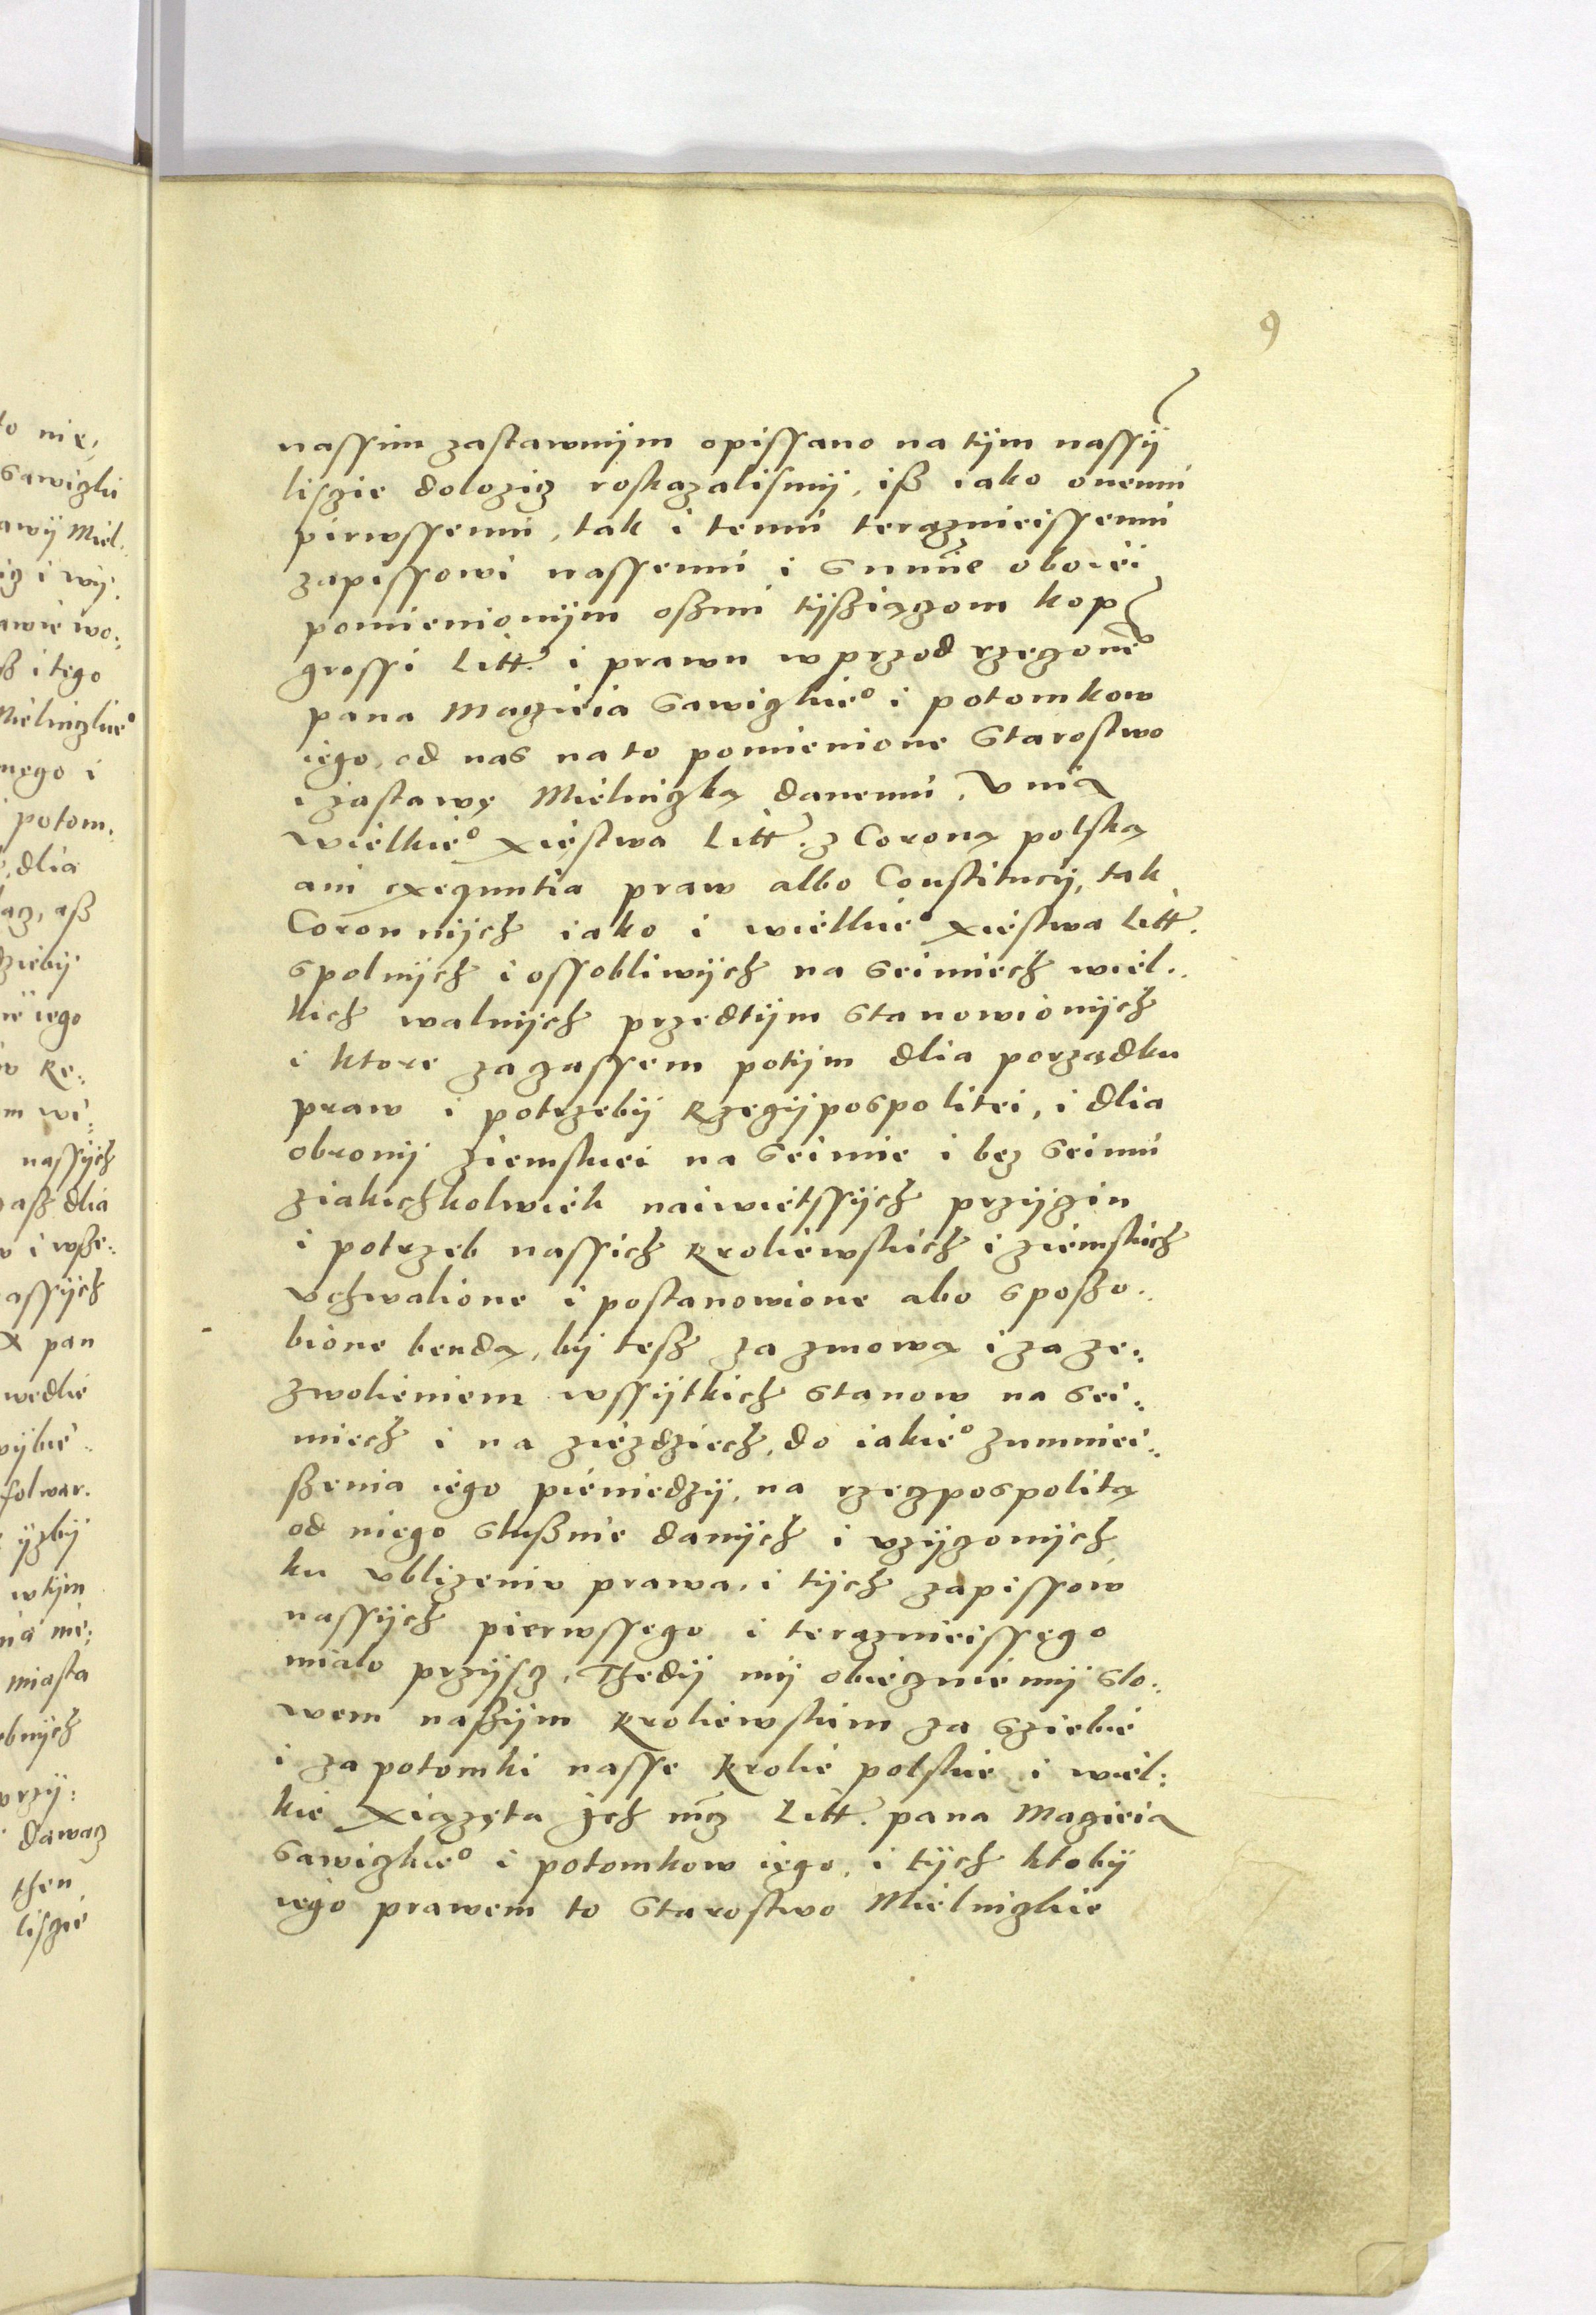 9
nassim zastawnÿm opissano na tÿm nassÿ
liscie dolozicz roskazalismÿ, iß iako onemu
pirwssemu, tak i temu teraznieissemu
zapissowi nassemu i summie oboiei
pomienionÿm oßmi tÿßiączom kop
grossi Litt. i prawu wprzod rzeczone°
pana Maczieia Sawiczkie° i potomkow
iego, od nas na to pomienione Starostwo
i zastawę Mielniczką danemu, Vnia
wielkie° xięstwa Litt. z Coroną polską
ani exequutia praw albo Constitucÿ, tak
Coronnÿch iako i wielkie° xięstwa Litt.
spolnÿch i ossobliwÿch na seimiech wiel..
kich walnÿch przedtÿm stanowionÿch
i ktore zaczassem potÿm dlia porządku
praw i potrzebÿ Rzeczÿpospolitei, i dlia
obronÿ ziemskiei na seimie i bez seimu
ziakichkolwiek naiwietssÿch przÿczin
i potrzeb nassich kroliewskich i ziemskich
vchwalione i postanowione abo sposzo..
bione bendą, bÿ tesz za zmową i zaze:
zwolieniem wssÿtkich stanow na sei:
miech i na ziezdziech, do iakie° zumniei:
ßenia iego pieniedzÿ, na rzeczpospolitą
od niego slußnie danÿch i vzÿczonÿch
ku vbliżeniu prawa, i tÿch zapissow
nassÿch pierwssego i teraznieissego
mialo przÿscz, Thedÿ mÿ obiecznie mÿ slo:
wem naßÿm kroliewskim za sziebie
i za potomki nasse krolie polskie i wiel:
kie xiążęta Jch mcz Litt. pana Maczieia
Sawiczkie° i potomkow iego, i tÿch ktobÿ
iego prawem to Starostwo Mielniczkie